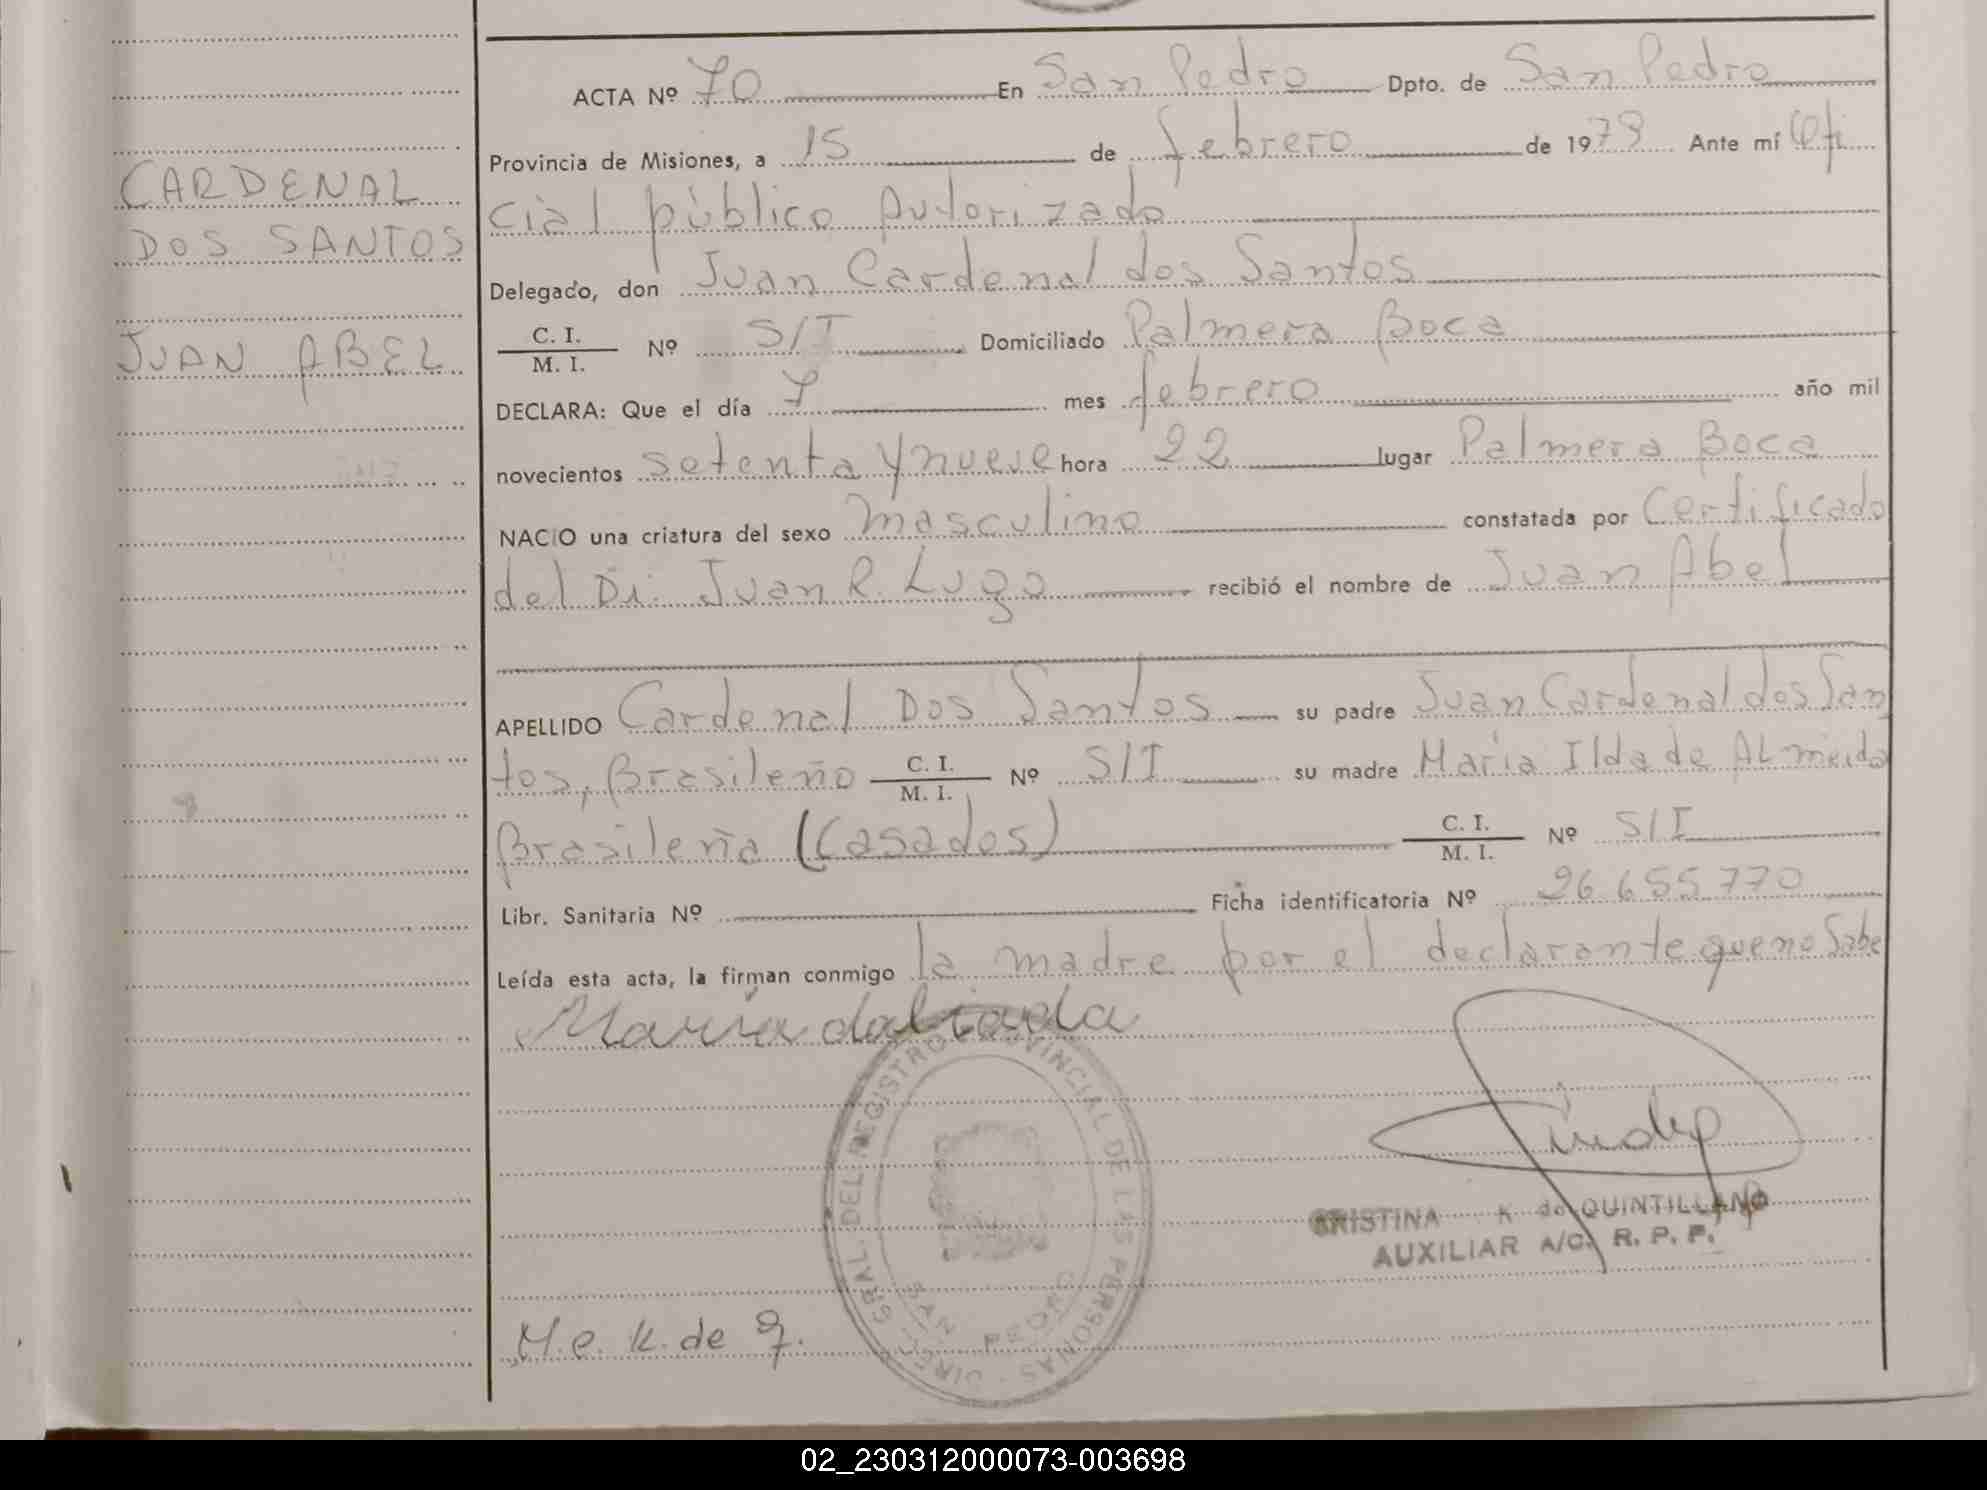 CARDENAL
DOS SANTOS
JUAN ABEL
ACTA Nº 70 En San Pedro Dpto. de San Pedro
Provincia de Misiones, a 15 de febrero de 1979 Ante mí Ofi
cial público Autorizado
Delegado, don Juan Cardenal dos Santos
C. I.
M. I. Nº S/I Domiciliado Palmera Boca
DECLARA: Que el día 7 mes febrero año mil
novecientos setenta y nueve hora 22 lugar Palmera Boca
NACIO una criatura del sexo masculino constatada por Certificado
del Dr. Juan R. Lugo recibió el nombre de Juan Abel
APELLIDO Cardenal Dos Santos su padre Juan Cardenal dos San
tos, Brasileño C. I.
M. I. Nº S/I su madre María Ilda de Almeida
Brasileña (Casados) C. I.
M. I. Nº S/I
Libr. Sanitaria Nº Ficha identificatoria Nº 26.655.770
Leída esta acta, la firman conmigo la madre por el declarante que no Sabe
Maria
DIREC. GRAL. DEL REGISTRO PROVINCIAL DE LAS PERSONAS
SAN PEDRO
CRISTINA K de QUINTILLANO
AUXILIAR A/C. R. P. P.
M. e. K. de Q.
02_230312000073-003698